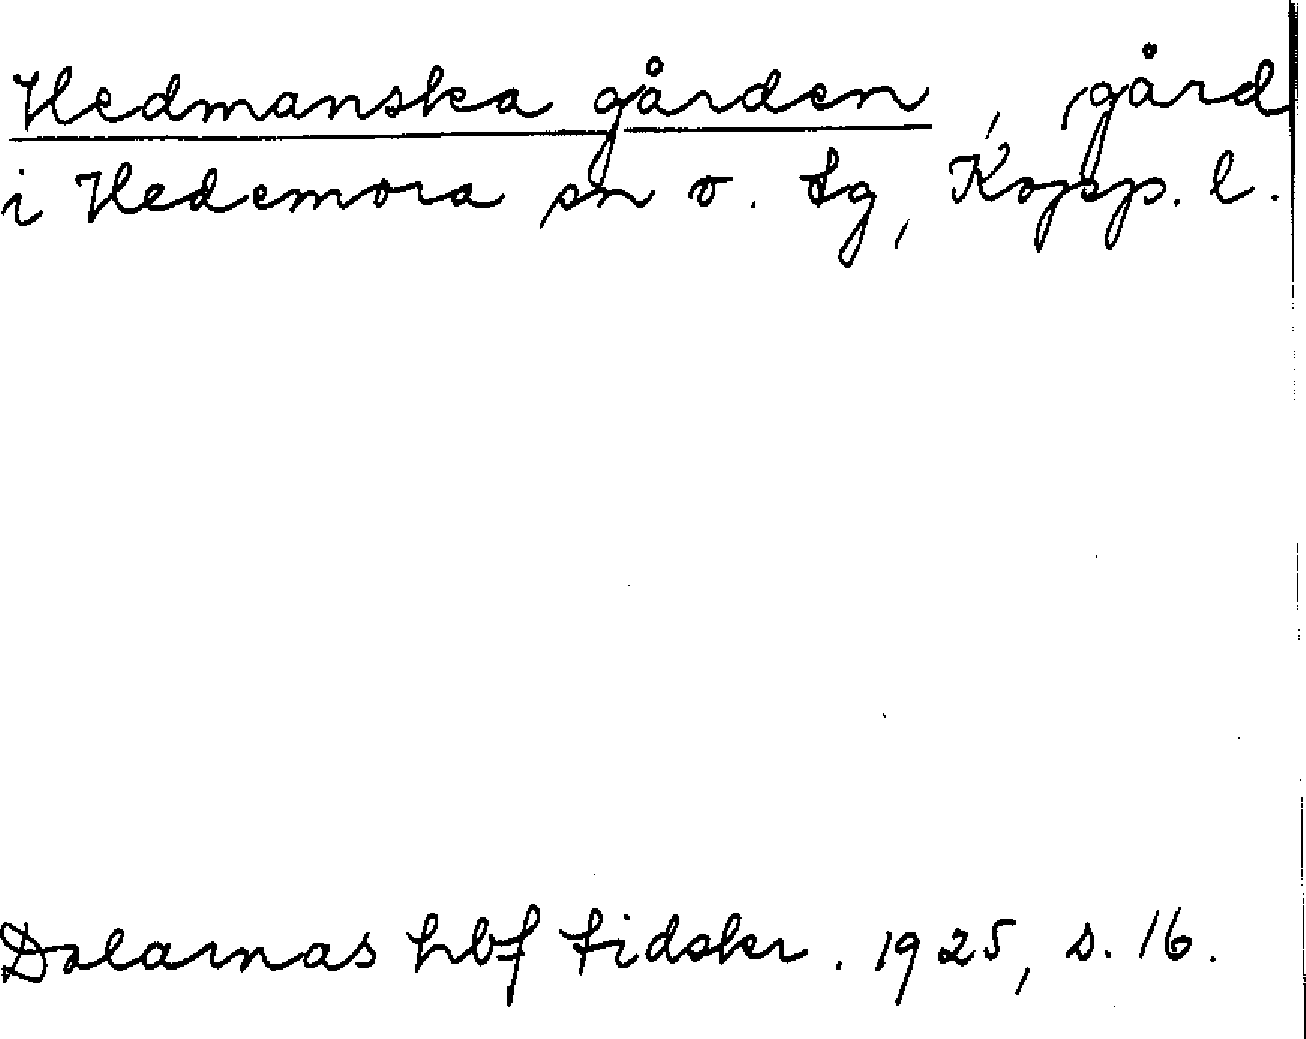 Hedmanska gården, gård
i Hedemora sn o. tg, Kopp. l.
Dalarnas hbf tidskr. 1925, s. 16.